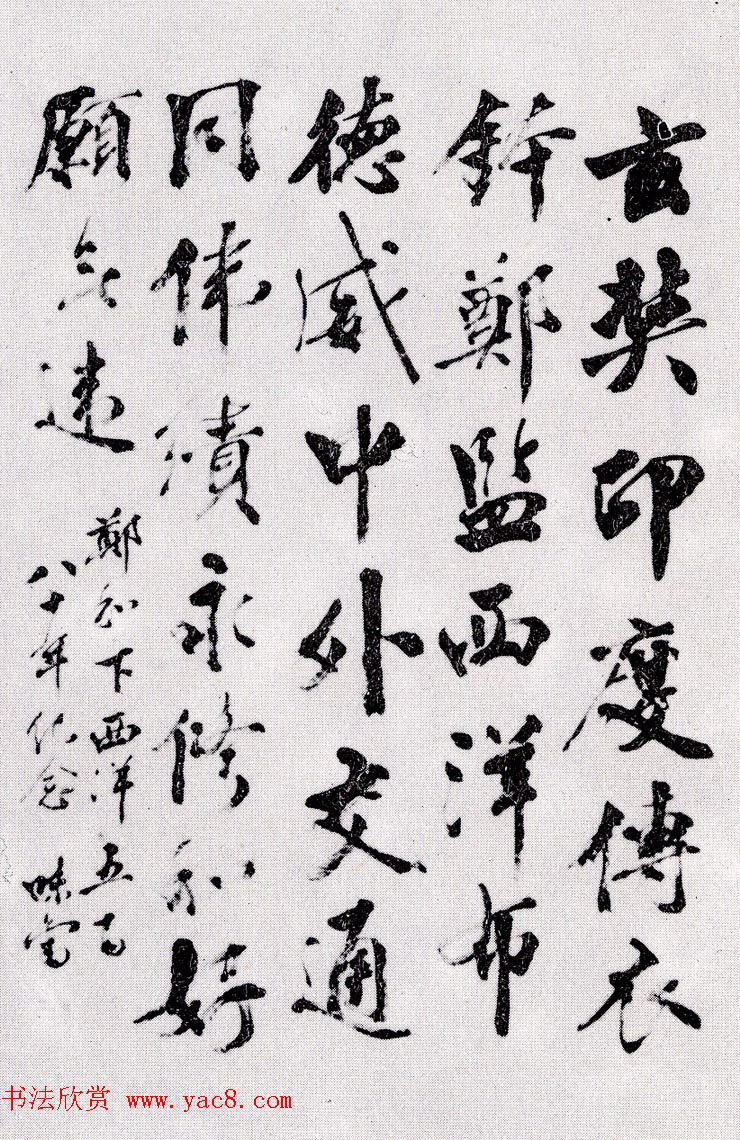 玄奘印度傳衣
鉢鄭監西洋布
德威中外交通
同偉績永修和好
願无違
鄭和下西洋五百
八十年紀念
书法欣赏 www.yac8.com